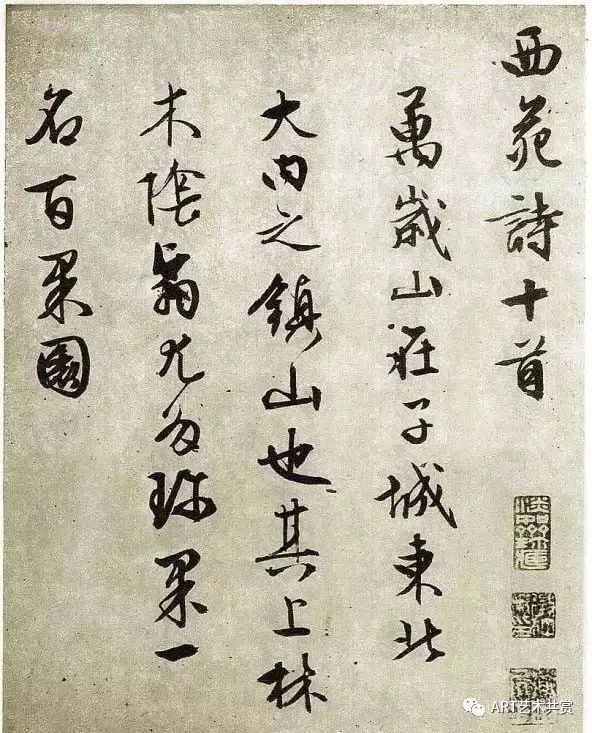 西苑詩十首
萬歲山在子城東北
大内之鎮山也其上林
木陰翳尤多珎果一
名百果園
ART艺术共赏